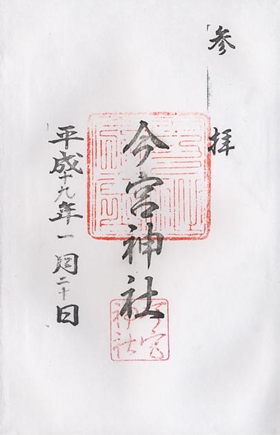 参拝
今宮神社
平成十九年一月二十日
今宮神社